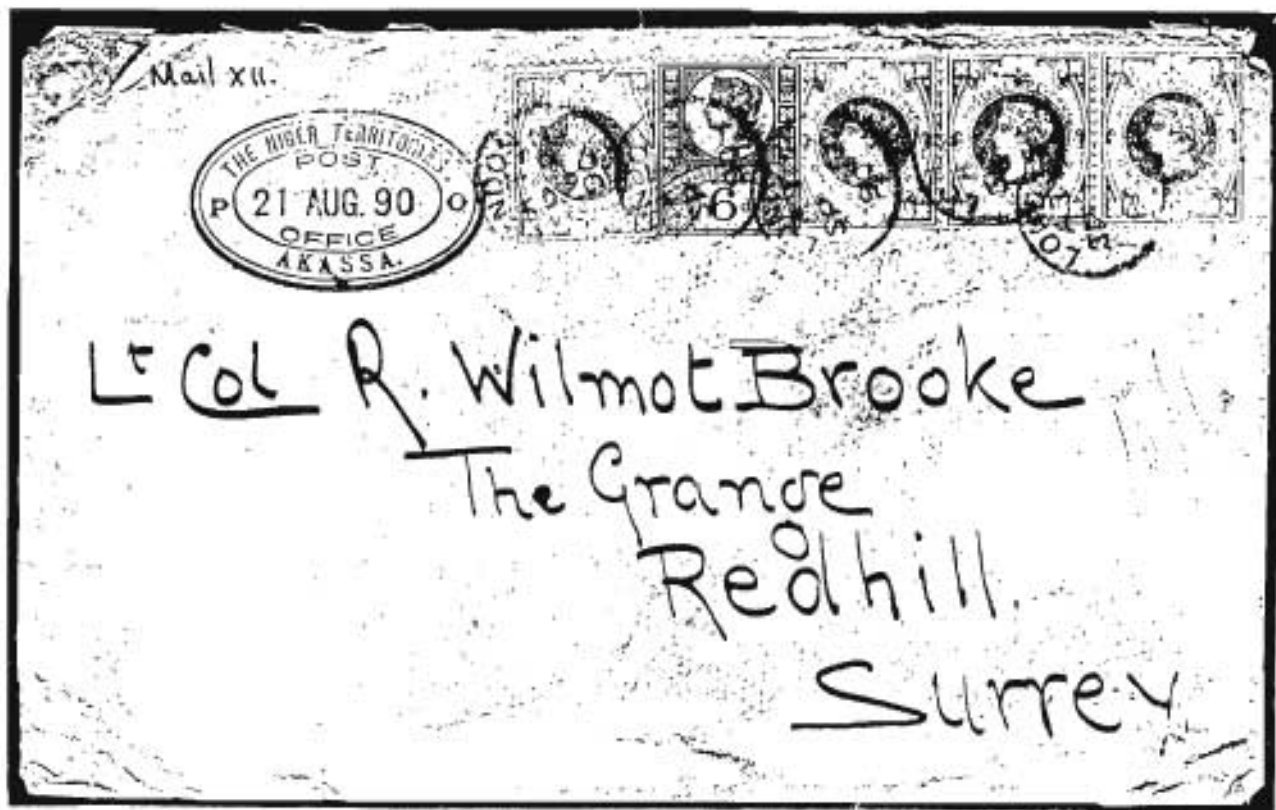 Mail XII.
THE NIGER TERRITORIES.
POST
P 21 AUG. 90 O
OFFICE
AKASSA.
6
Lt Col R. Wilmot Brooke
The Grange
Redhill
Surrey